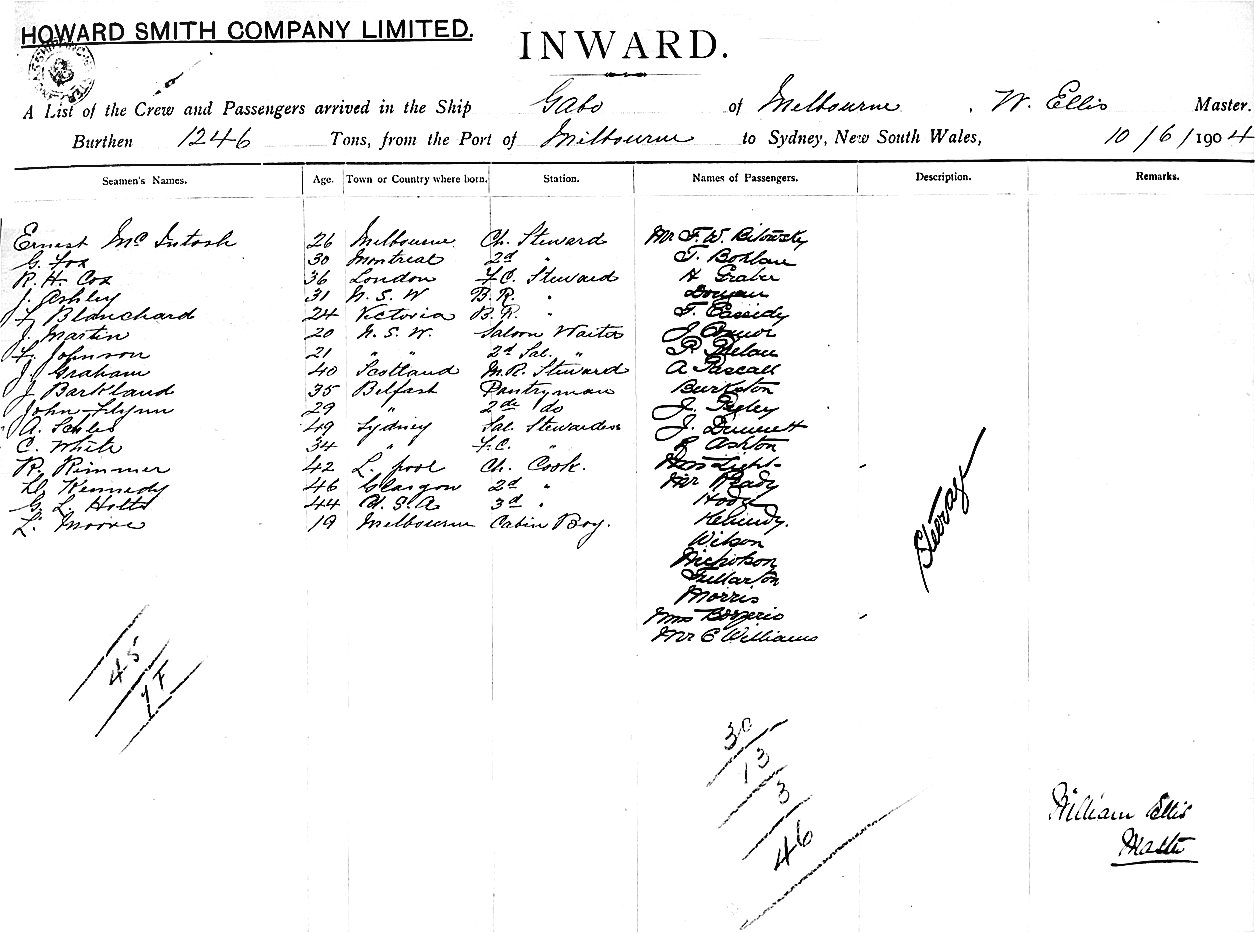 HOWARD SMITH COMPANY LIMITED.
INWARD.
A List of the Crew and Passengers arrived in the Ship Gabo of Melbourne, W. Ellis Master.
Burthen 1246 Tons, from the Port of Melbourne to Sydney, New South Wales, 10/6/1904
Seamen's Names. Age. Town or Country where born. Station. Names of Passengers. Description. Remarks.
Ernest McIntosh 26 Melbourne Ch. Steward Mr F. W.
G. Fox 30 Montreal 2d "
R. H. Cox 36 London F.C. Steward
J. Ashley 31 N. S. W B. R. "
F. Blanchard 24 Victoria B. R. " T. Cassidy
J. Martin 20 N. S. W. Saloon Waiter J.
F. Johnson 21 " " 2d Sal. " P.
J. Graham 40 Scotland M.R. Steward A Pascall
J Barkland 35 Belfast Pantryman
John Flynn 29 " 2de do J.
A. 49 Sydney Sal. Stewardess J.
C. White 34 " F.C. " Ashton
R. Rimmer 42 L. pool Ch. Cook. Light
D. Kennedy 46 Glasgow 2d " Mr
G. L. Holts 44 U. S. A 3rd "
L. Moore 19 Melbourne Cabin Boy.
Wilson
Nicholson
Fullarton
Morris
Mrs
Mr E Williams
Steerage
45
1F
30
13
3
46
William Ellis
Master